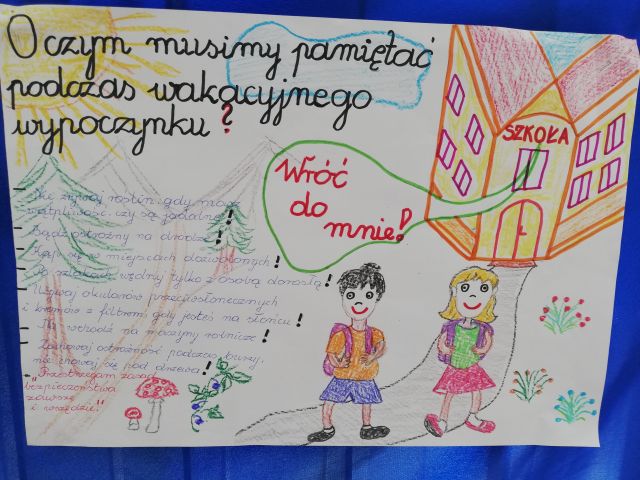 O czym musimy pamiętać
podczas wakacyjnego
wypoczynku?
SZKOŁA
Wróć
do
mnie!
Nie zrywaj roślin, gdy masz
wątpliwość, czy są jadalne!
Bądź ostrożny na drodze!
Kąp się w miejscach dozwolonych!
Po szlakach wędruj tylko z osobą dorosłą!
Używaj okularów przeciwsłonecznych
i kremów z filtrem, gdy jesteś na słońcu!
Nie wchodź na maszyny rolnicze!
Zachowaj ostrożność podczas burzy,
nie chowaj się pod drzewa!
"Przestrzegam zasad
bezpieczeństwa
zawsze
i wszędzie!"